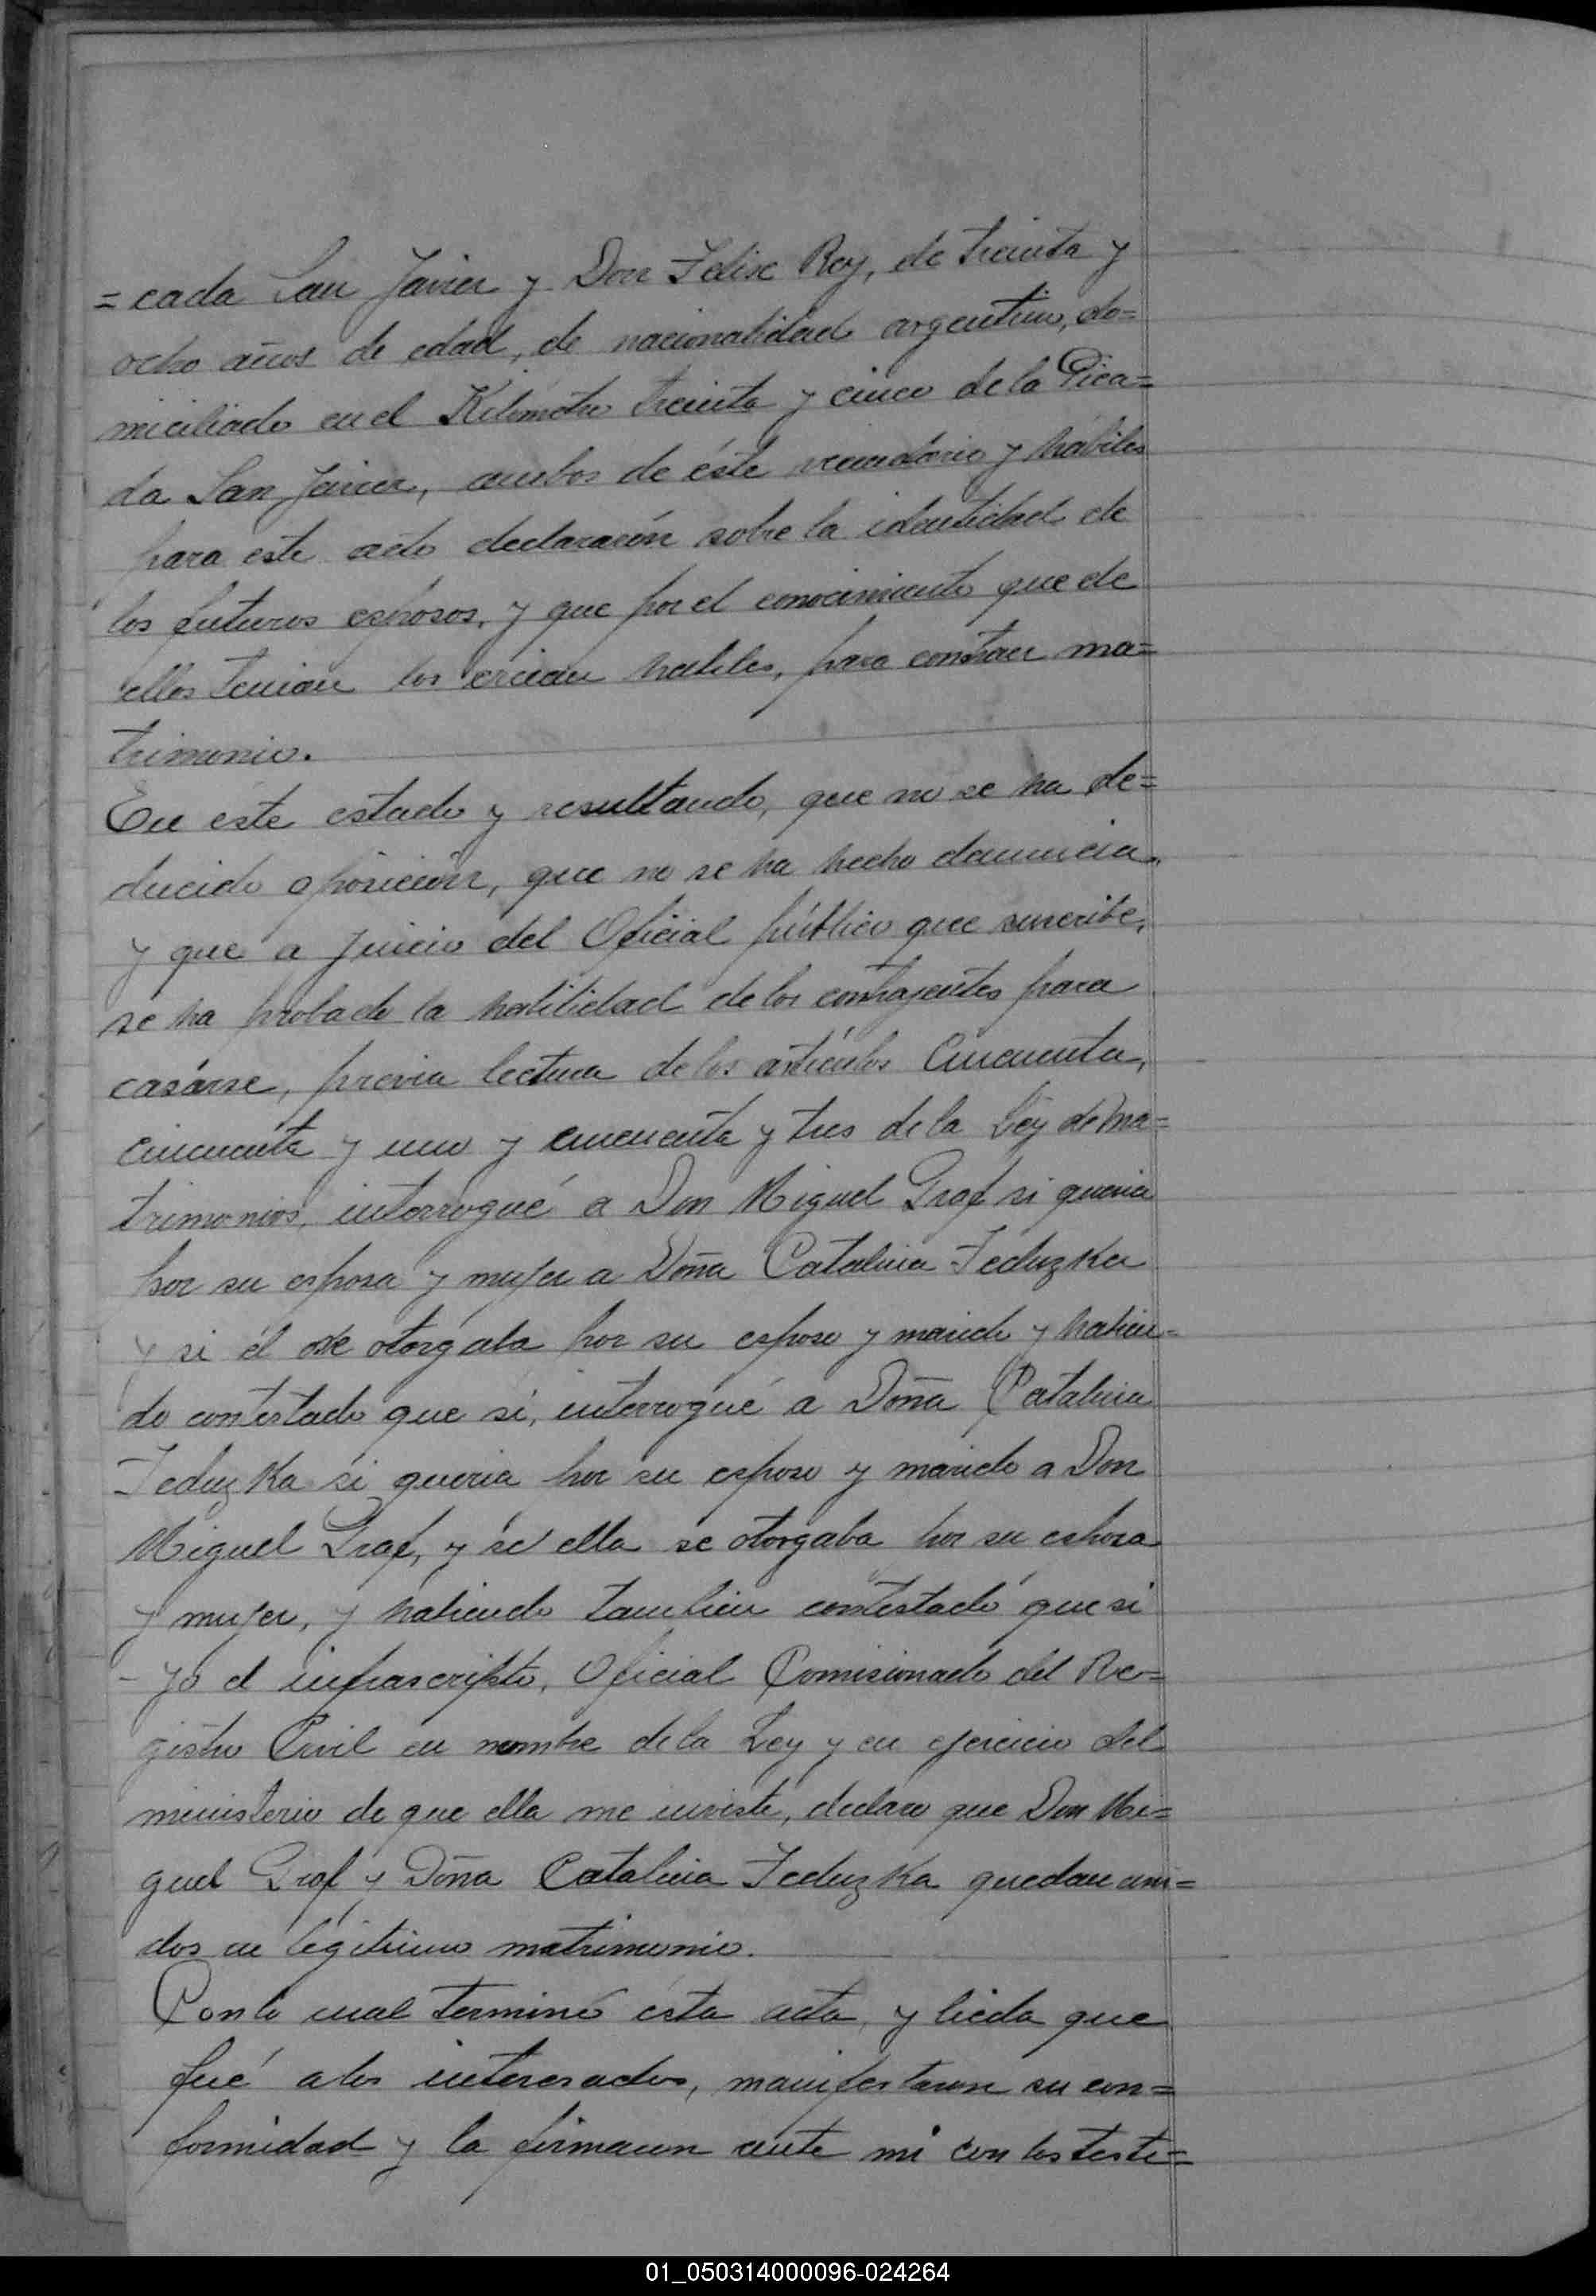 =cada San Javier y Don Felix Rey, de treinta y
ocho años de edad, de nacionalidad argentino, do=
miciliado en el Kilómetro treinta y cinco de la Pica=
da San Javier, ambos de éste vecindario y hábiles
para este acto declararón sobre la identidad de
los futuros esposos, y que por el conocimiento que de
ellos tenian los creian habiles, para contraer ma=
trimonio.
En éste estado y resultando, que no se ha de=
ducido oposición, que no se ha hecho denuncia,
y que a juicio del Oficial público que suscribe,
se ha probado la habilidad de los contrayentes para
casárse, previa lectura de los artículos Cincuenta,
cincuenta y uno y cincuenta y tres de la Ley de Ma=
trimonios, interrogué a Don Miguel Graf si queria
por su esposa y mujer a Doña Catalina Feduzka
y si él se otorgaba por su esposo y marido y habien=
do contestado que si, interrogué a Doña Catalina
Feduzka si queria por su esposo y marido a Don
Miguel Graf, y si ella se otorgaba por su esposa
y mujer, y habiendo tambien contestado que si
- yo el infrascripto, Oficial Comisionado del Re=
gistro Civil en nombre de la Ley y en ejercicio del
ministerio de que ella me inviste, declaro que Don Mi=
guel Graf y Doña Catalina Feduzka quedan uni=
dos en legitimo matrimonio.
Con lo cual terminó ésta acta, y lieda que
fué a los interesados, manifestaron su con=
formidad y la firmaron ante mi con los testi=
01_050314000096-024264